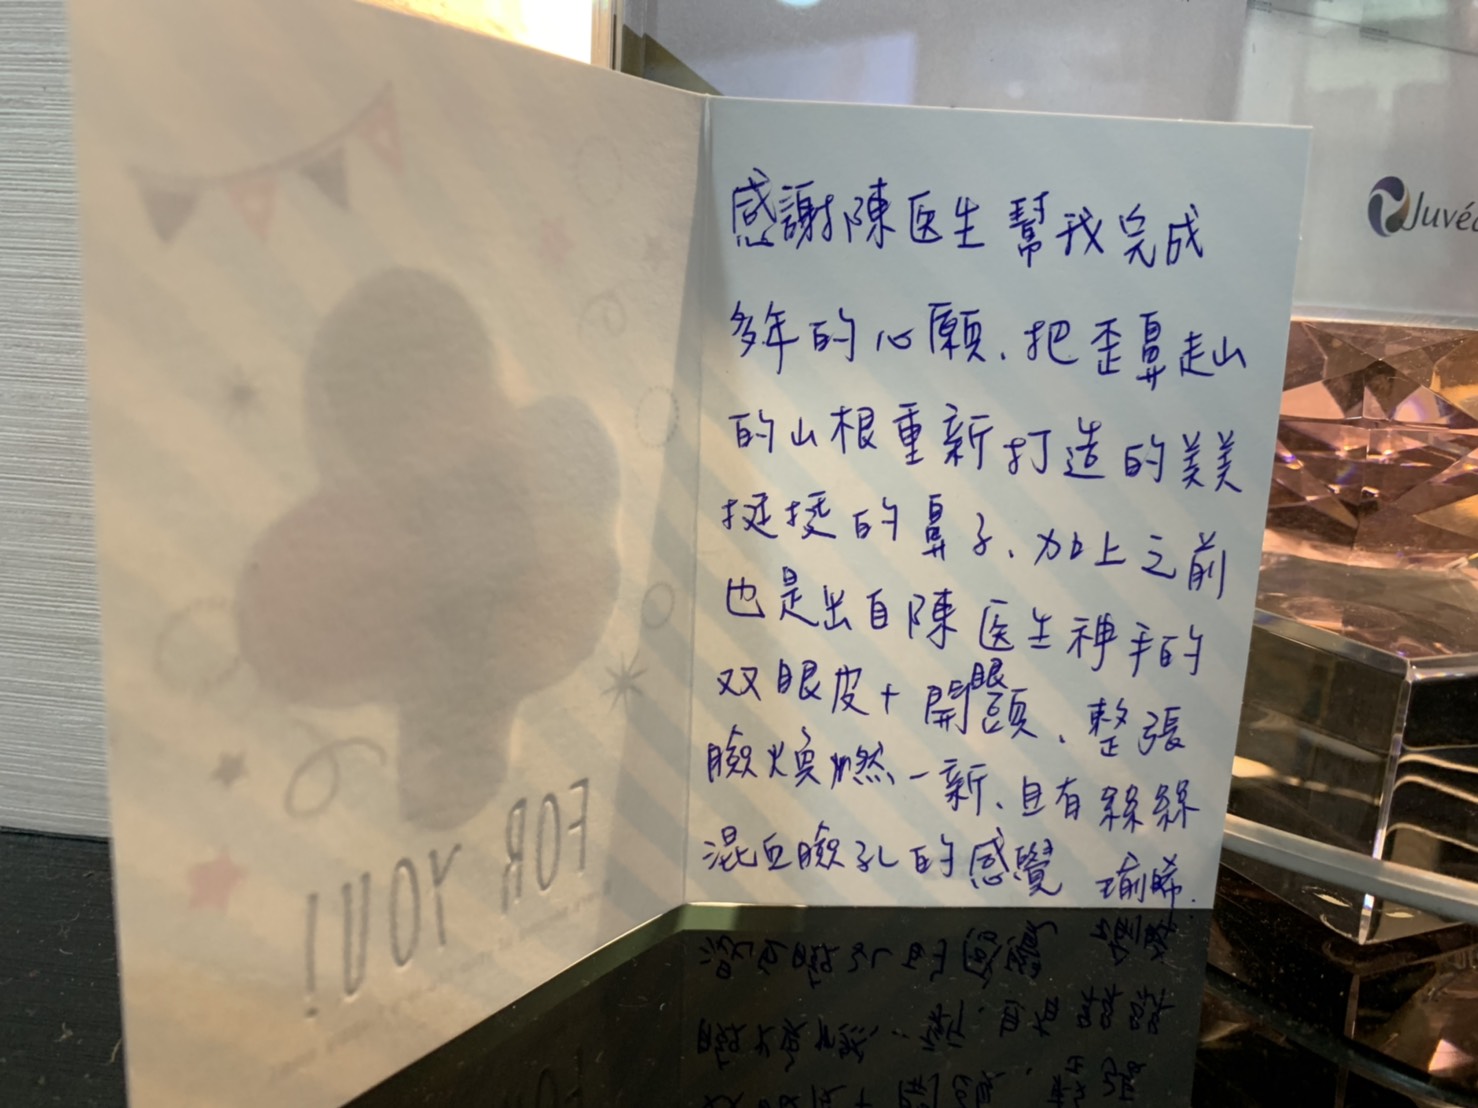 感謝陳医生幫我完成
多年的心願、把歪鼻走山
的山根重新打造的美美
挺挺的鼻子、加上之前
也是出自陳医生神手的
双眼皮+開眼頭、整張
臉煥燃一新、且有絲絲
混血臉孔的感覺 瑜晞.
FOR YOU!
Juvé